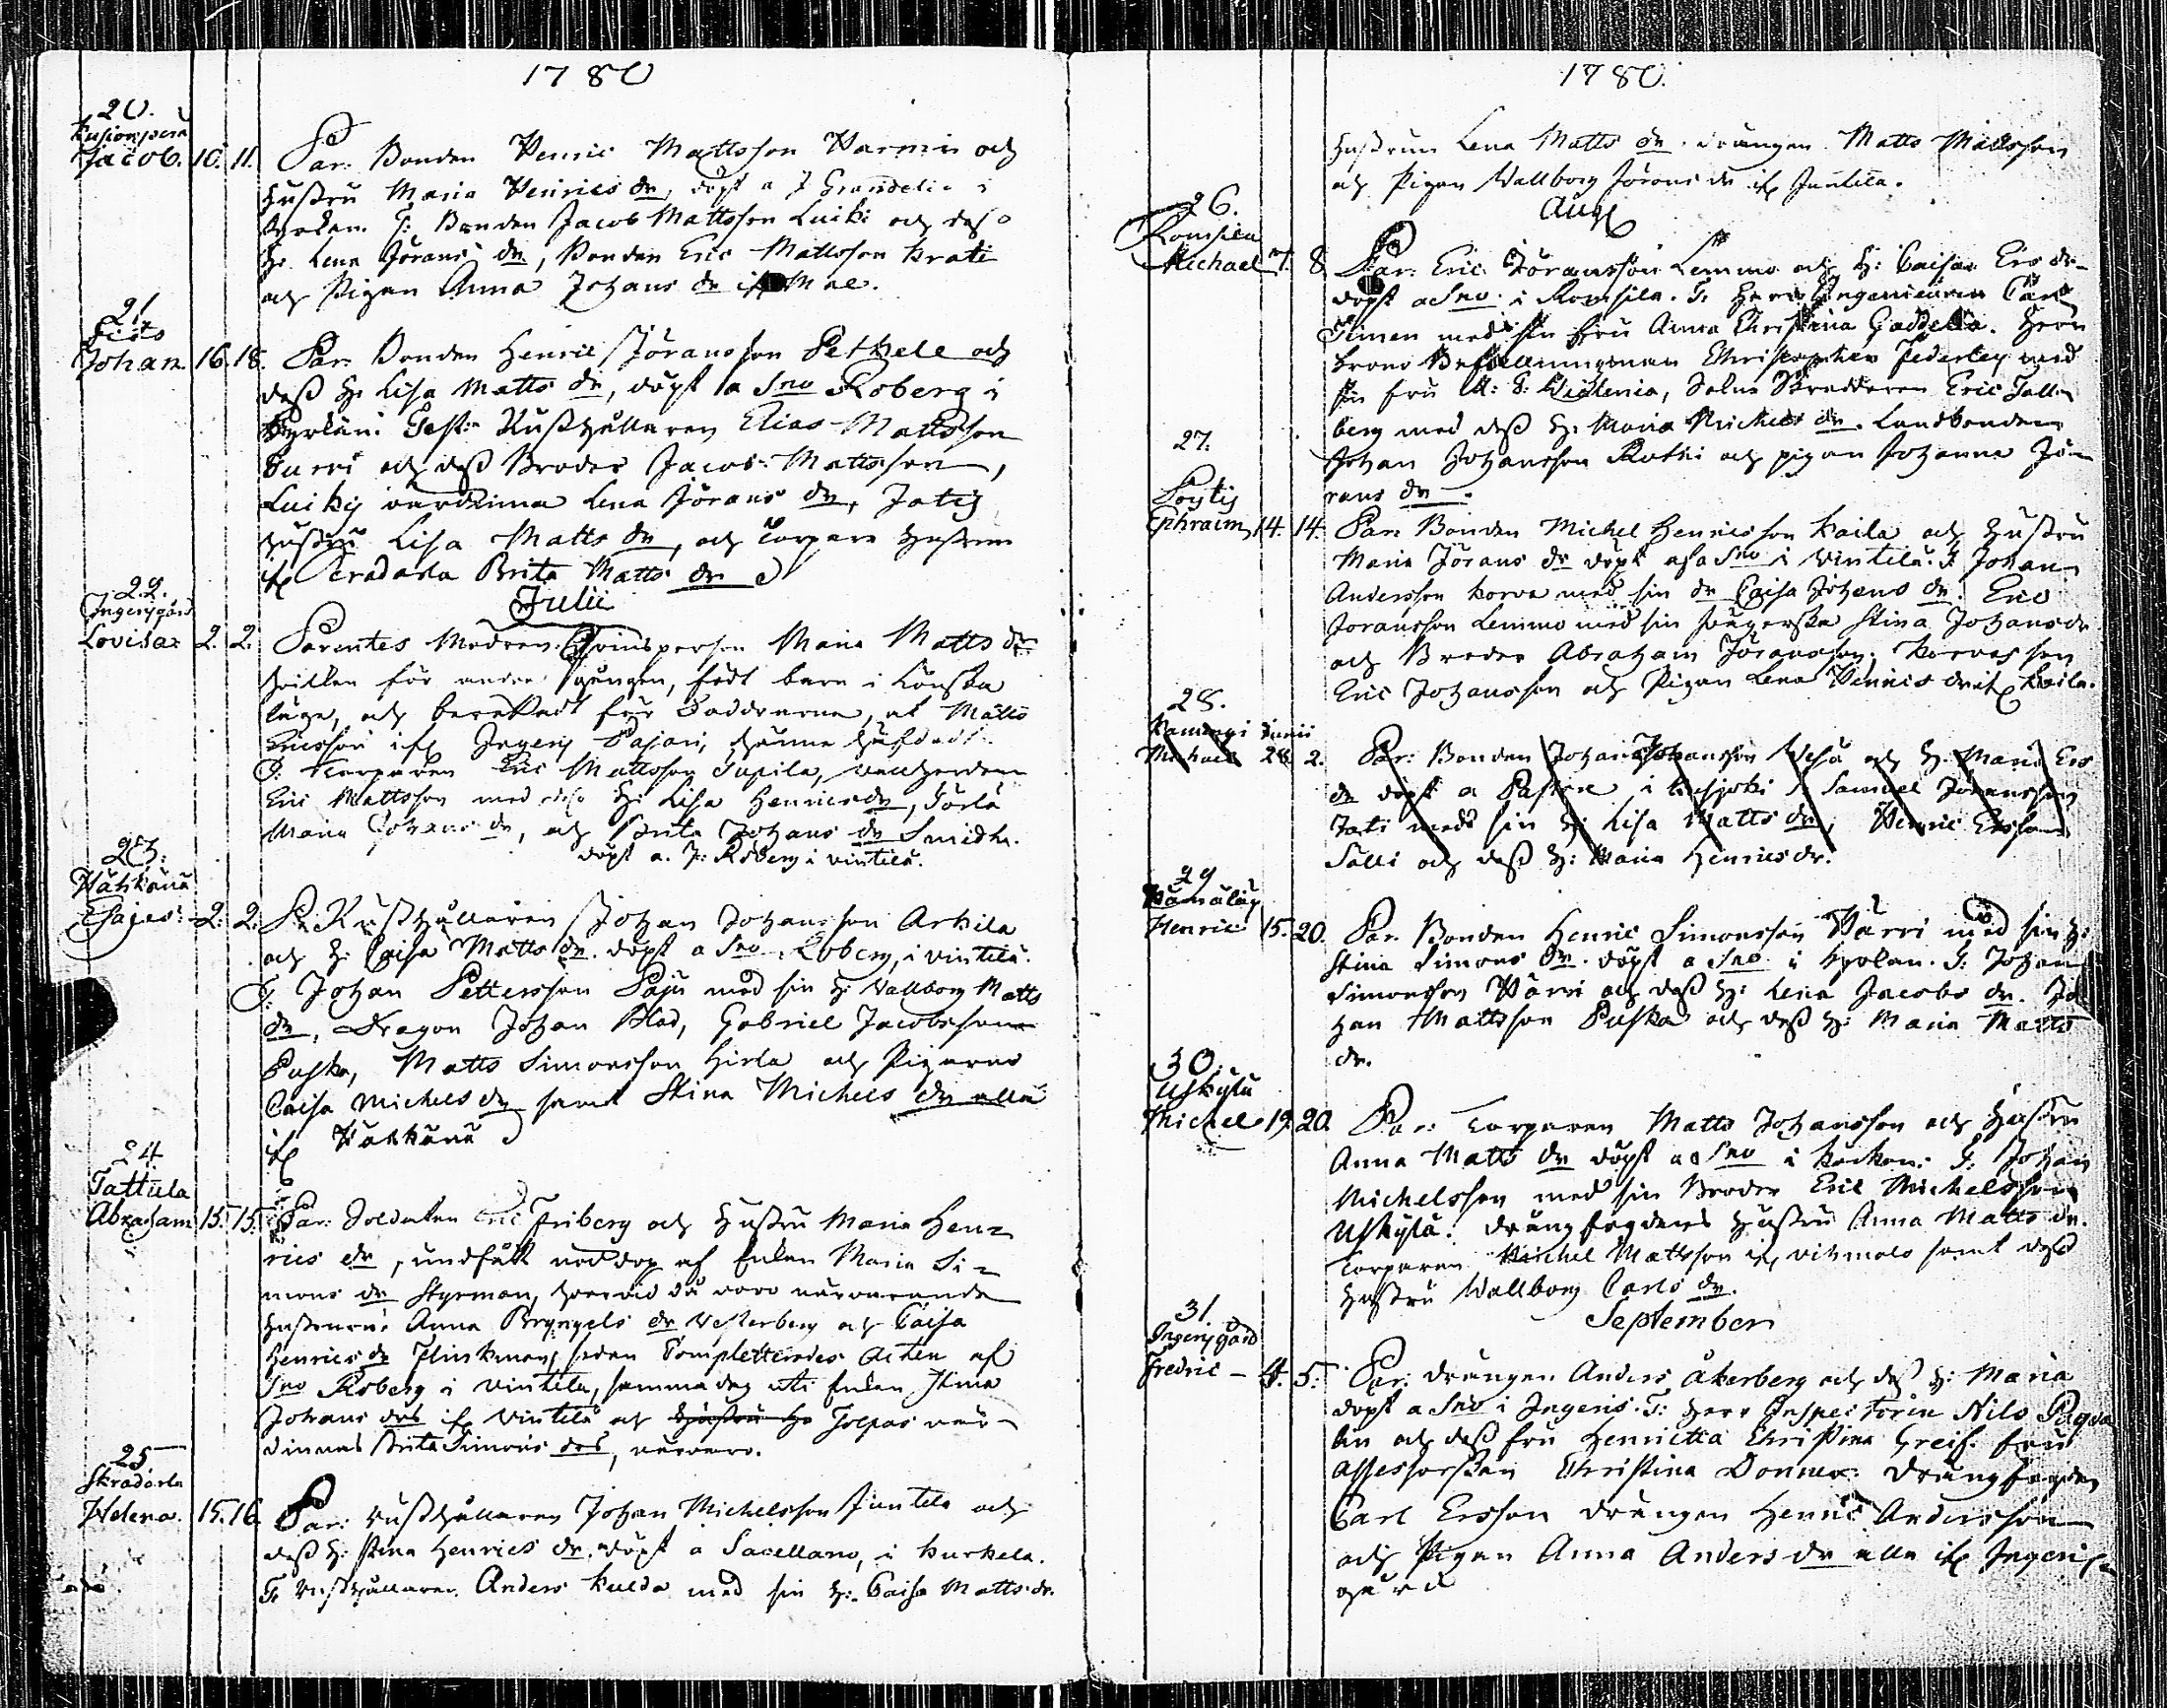 1780
20.
Jacob. 10. 11. Par: Bonden Henric Mattsson Varmin och
hustru Maria Henrics dr, döpt a J Grandelin i
Kyrkan. T: Bonden Jacob Mattsson Luiki och dess
H. Lena Jörans dr, Bonden Eric Mattsson Krati
och Pigan Anna Johans dr if
21.
Johan. 16. 18. Par: Bonden Henric Jöransson Pethele och
dess H: Lisa Matts dr, döpt a Sno Roberg i
Kyrkan. Test: Rusthållaren Elias Mattsson
och dess Broder Jacob Mattsson,
Luikis värdinna Lena Jörans dr, Jatis
hustru Lisa Matts dr, och Torpare hustrun
if Brita Matts dr
Julii
22.
Ingerisgård
Lovisa: 2. 2. Parentes Modren Qvinsperson Maria Matts dr
hvilken för andra gången, födt barn i Lönska
läge, och berättadt för Faddrarna, at Matts
Ericsson if Ingeris Pajari, henne häfdadt.
T: Torparen Eric Mattsson Supila,
Eric Mattsson med dess H: Lisa Henrics dr,
Maria Johans dr, och Brita Johans dr Smidh.
döpt a. J: Roberg i Vintilä.
23.
Esajas: 2. 2. P: Rusthållaren Johan Johansson Arkila
och H: Caisa Matts dr. döpt a Sno. Roberg, i Vintilä.
T: Johan Pettersson Paju med sin H: Vallborg Matts
dr, Dragon Johan Blad, Gabriel Jacobsson
Puska, Matts Simonsson Hirla och Pigorne
Caisa Michels dr samt Stina Michels dr alla
if
24.
Tattula
Abraham 15. 15. Par: Soldaten Eric Friberg och Hustru Maria Hen=
rics dr, undfått nöddop af Enkan Maria Si=
mons dr Styrman, hvarvid då voro närvarande
hustrurne Anna Bryngels dr Vesterberg och Caisa
Henrics dr Flinkman, sedan Completterades Acten af
Sno Roberg i Vintilä, samma dag uti Enkan Stina
Johans drs if Vintilä och Hustru Tolpas vär=
dinnas Brita Simons drs, närvaro.
25
Skradarla
Helena. 15. 16. Par: Rusthållaren Johan Michelsson Juntila och
dess H: Stina Henrics dr. döpt a Sacellano, i Kurkela.
T: Rusthållaren Anders Kulda med sin H: Caisa Matts dr.
1780.
hustrun Lena Matts dr. drängen Matts Mattsson
och Pigan Wallborg Jörans dr if Juntila.
Aug
26.
Romsila
Michael 7. 8. Par: Eric Jöransson Lemmo och H: Caisa Ers dr
döpt a Sno i Romsila. T: Herr Ingenieuren Carl
Timen med sin fru Anna Christina Gaddelia. Herr
Krono Befallningsman Christopher Federley med
sin fru Skräddaren Eric Tall=
berg med dess H: Maria Michels dr. Landbonden
Johan Johansson Rothi och pigan Johanna Jö=
rans dr.
27.
Pöytis
Ephraim 14. 14. Par: Bonden Michel Henricsson Kaila och hustru
Maria Jörans dr döpt af a Sno i Vintilä. T: Johan
Andersson Korva med sin dr Caisa Johans dr. Eric
Joransson Lemmo med sin svägerska Stina Johans dr
och Broder Abraham Jöransson, Korvas son
Eric Johansson och Pigan Lena Henrics dr if Kaila.
28.
Junii
Michael 28. 2. Par: Bonden Johan Johansson och H: Maria Ers
dr döpt a Pastore i T: Samuel Jöransson
Jati med sin H: Lisa Matts dr, Henric Ersson
Sälli och dess H: Maria Henrics dr.
29
Henric 15. 20. Par: Bonden Henric Simonsson Värri med sin H:
Stina Simons dr. döpt a Sno i Kyrkan. T: Johan
Simonsson Värri och dess H: Lena Jacobs dr. Jo
han Mattsson Puska och dess H: Maria Matts
dr.
30.
Uskylä
Michel 19. 20. Par: Torparen Matts Johansson och Hustru
Anna Matts dr döpt a Sno i Kyrkan. T: Johan
Michelsson med sin Broder Eric Michelsson
Uskylä. drängfogdens hustru Anna Matts dr.
Torparen Michel Mattsson if Vihmalo samt dess
hustru Wallborg Carls dr.
September
31.
Ingerisgård
Fredric - 4. 5. Par: drängen Anders Åkerberg och dess H: Maria
döpt a Sno i Ingeris. T: Herr Inspectoren Nils
och dess fru Henrietta Christina Greif. fru
Assessorskan Christina Donner. drängfogden
Carl Ersson drängen Henric Andersson
och Pigan Anna Anders dr alla if Ingeris=
gård